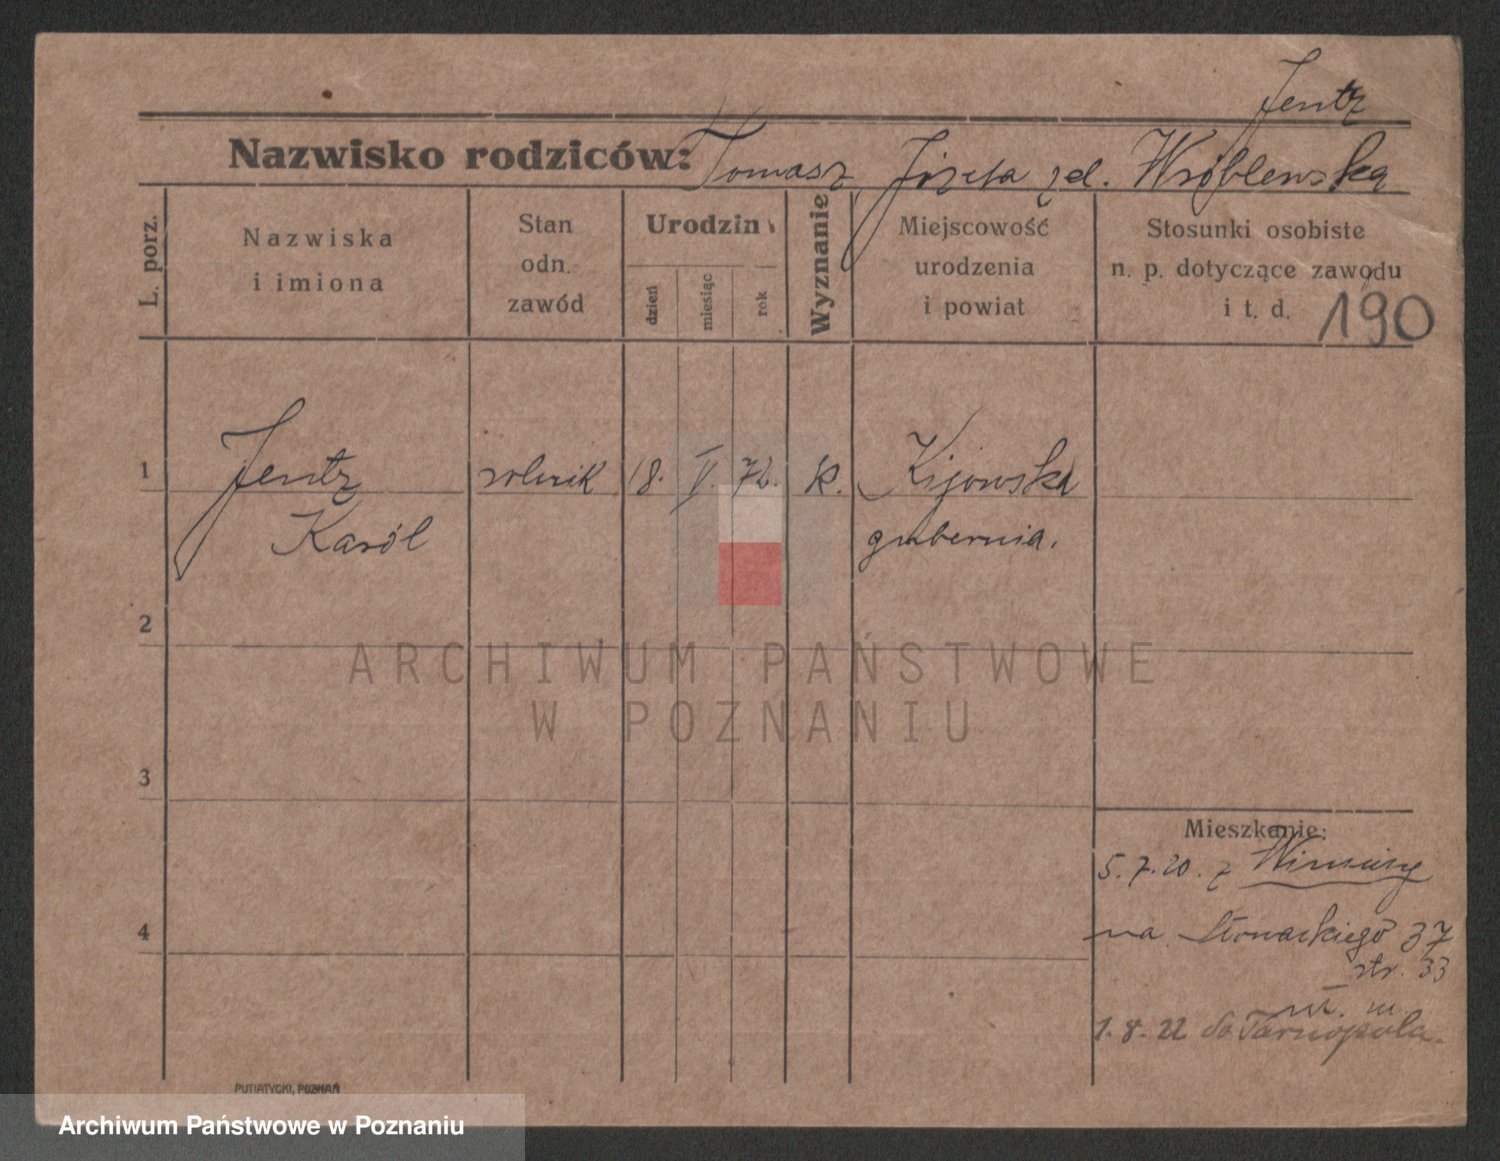 Jentz
Nazwisko rodziców: Tomasz Józefa zd. Wróblewska
L. porz.
Nazwiska
i imiona
Stan
odn.
zawód
Urodzin
dzień
miesiąc
rok
Wyznanie
Miejscowość
urodzenia
i powiat
Stosunki osobiste
n. p. dotyczące zawodu
i t. d.
190
1
Jentz
Karól
rolnik
18. V. 72. k.
Kijowska
gubernia.
2
ARCHIWUM PAŃSTWOWE
W POZNANIU
3
4
Mieszkanie:
5.7.20. z Winiary
na Słowackiego 37
str. 33
1.8.22 do Tarnopola.
PUTIATYCKI, POZNAŃ
Archiwum Państwowe w Poznaniu